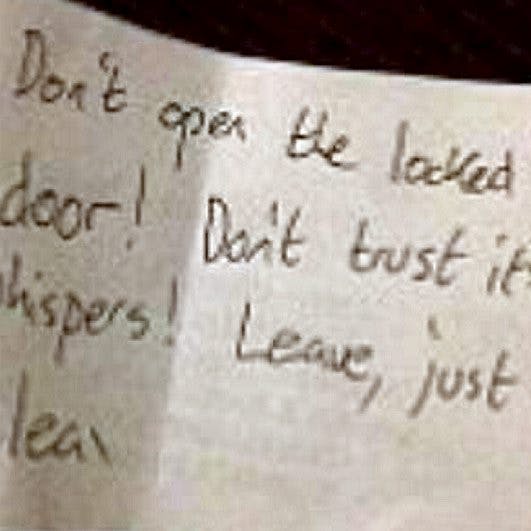 Don't open the locked
door! Don't trust it
whispers! Leave, just
lea